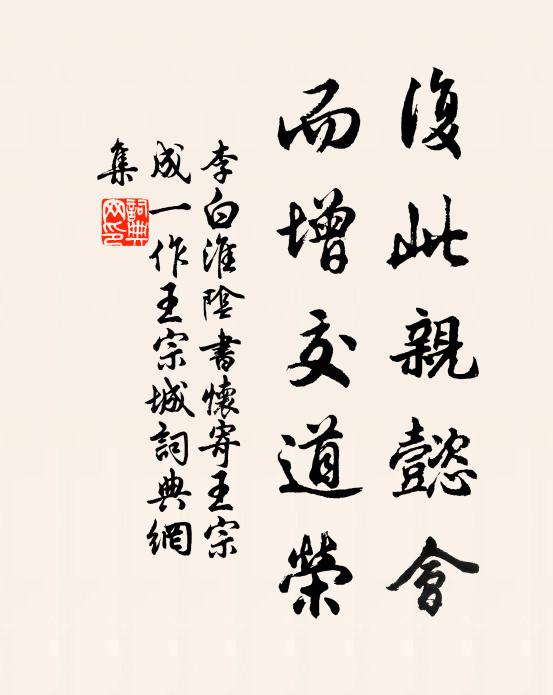 復此親懿會
而增交道榮
李白淮陰書懷寄王宗
成一作王宗城詞典網
集
詞典
网印